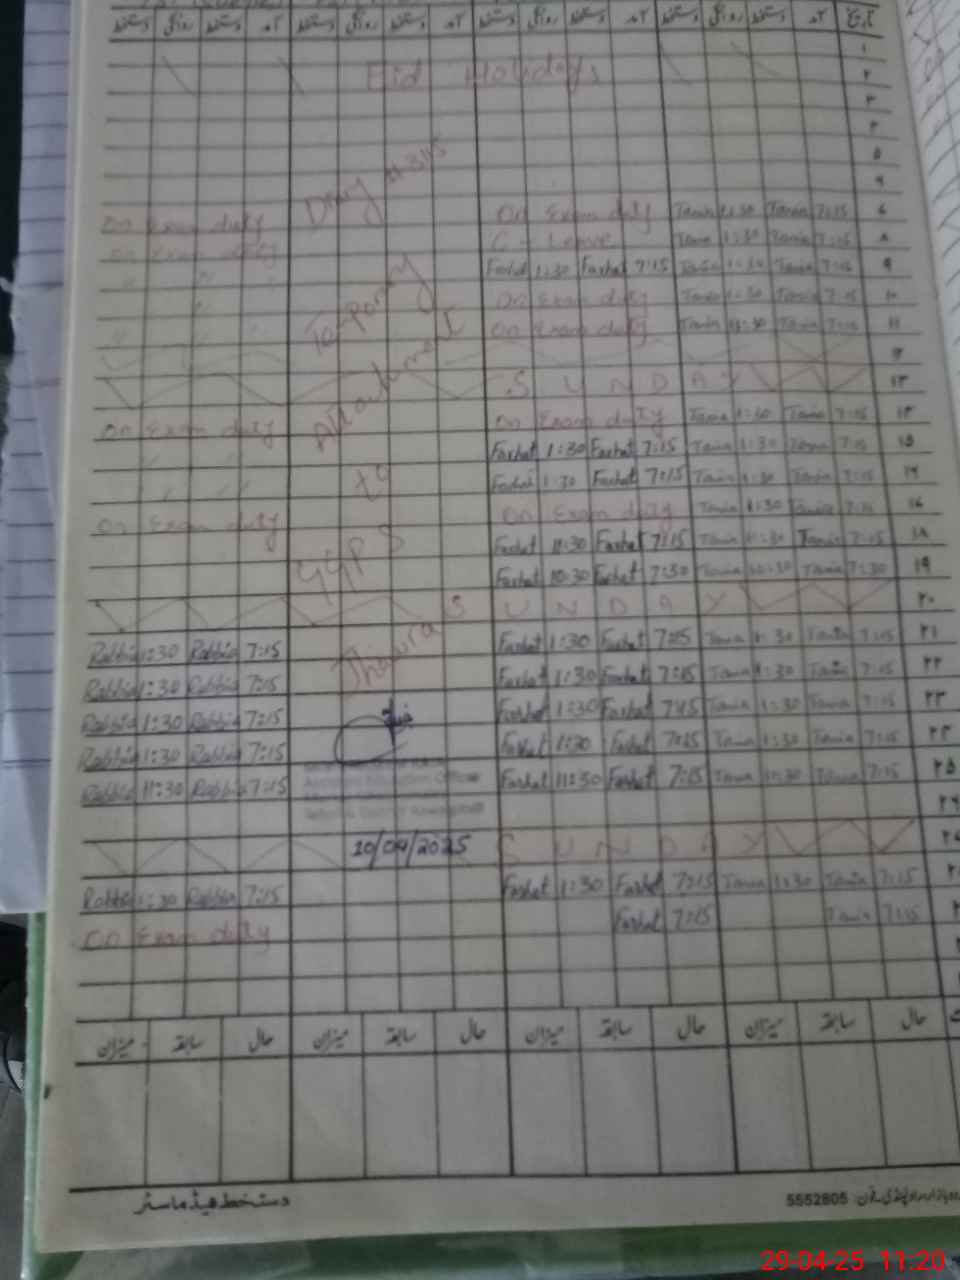 دستخط روانگی دستخط آمد دستخط روانگی دستخط آمد دستخط روانگی دستخط آمد دستخط روانگی دستخط آمد تاریخ
۱
Eid Holidays ۲
۳
۴
۵
۶
On Exam duty Diary # On Exam duty Tania 1:30 Tania 7:15 ۷
on Exam duty C - Leave Tania 1:30 Tania 7:15 ۸
" " " Farhat 1:30 Farhat 7:15 Tania 1:30 Tania 7:15 ۹
" Temporary On Exam duty Tania 1:30 Tania 7:15 ۱۰
" " " On Exam duty Tania 11:30 Tania 7:15 ۱۱
۱۲
Attachment S U N D A Y ۱۳
On Exam duty On Exam duty Tania 1:30 Tania 7:15 ۱۴
" " " Farhat 1:30 Farhat 7:15 Tania 1:30 Tania 7:15 ۱۵
" " " to Farhat 1:30 Farhat 7:15 Tania 1:30 Tania 7:15 ۱۶
On Exam duty On Exam duty Tania 1:30 Tania 7:15 ۱۷
GGPS Farhat 11:30 Farhat 7:15 Tania 11:30 Tania 7:15 ۱۸
Farhat 10:30 Farhat 7:30 Tania 10:30 Tania 7:30 ۱۹
S U N D A Y ۲۰
Rabbia 1:30 Rabbia 7:15 Farhat 1:30 Farhat 7:15 Tania 1:30 Tania 7:15 ۲۱
Rabbia 1:30 Rabbia 7:15 Farhat 1:30 Farhat 7:15 Tania 1:30 Tania 7:15 ۲۲
Rabbia 1:30 Rabbia 7:15 Farhat 1:30 Farhat 7:15 Tania 1:30 Tania 7:15 ۲۳
Rabbia 1:30 Rabbia 7:15 Farhat 1:30 Farhat 7:15 Tania 1:30 Tania 7:15 ۲۴
Rabbia 11:30 Rabbia 7:15 Assistant Education Officer Farhat 11:30 Farhat 7:15 Tania 11:30 Tania 7:15 ۲۵
۲۶
10/04/2025 S U N D A Y ۲۷
Rabbia 1:30 Rabbia 7:15 Farhat 1:30 Farhat 7:15 Tania 1:30 Tania 7:15
On Exam duty Farhat 7:15 Tania 7:15
میزان سابقہ حال میزان سابقہ حال میزان سابقہ حال میزان سابقہ حال
دستخط ہیڈ ماسٹر
راولپنڈی فون: 5552805
29-04-25 11:20